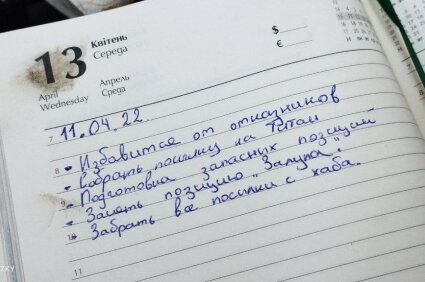 13
Квітень
Середа
April
Wednesday
Апрель
Среда
$
€
7
11.04.22
8 • Избавится от отказников
• Собрать посылку на Титан
9 • Подготовка запасных позиций
• Занять позицию „Залупа".
10 • Забрать все посылки с хаба.
11